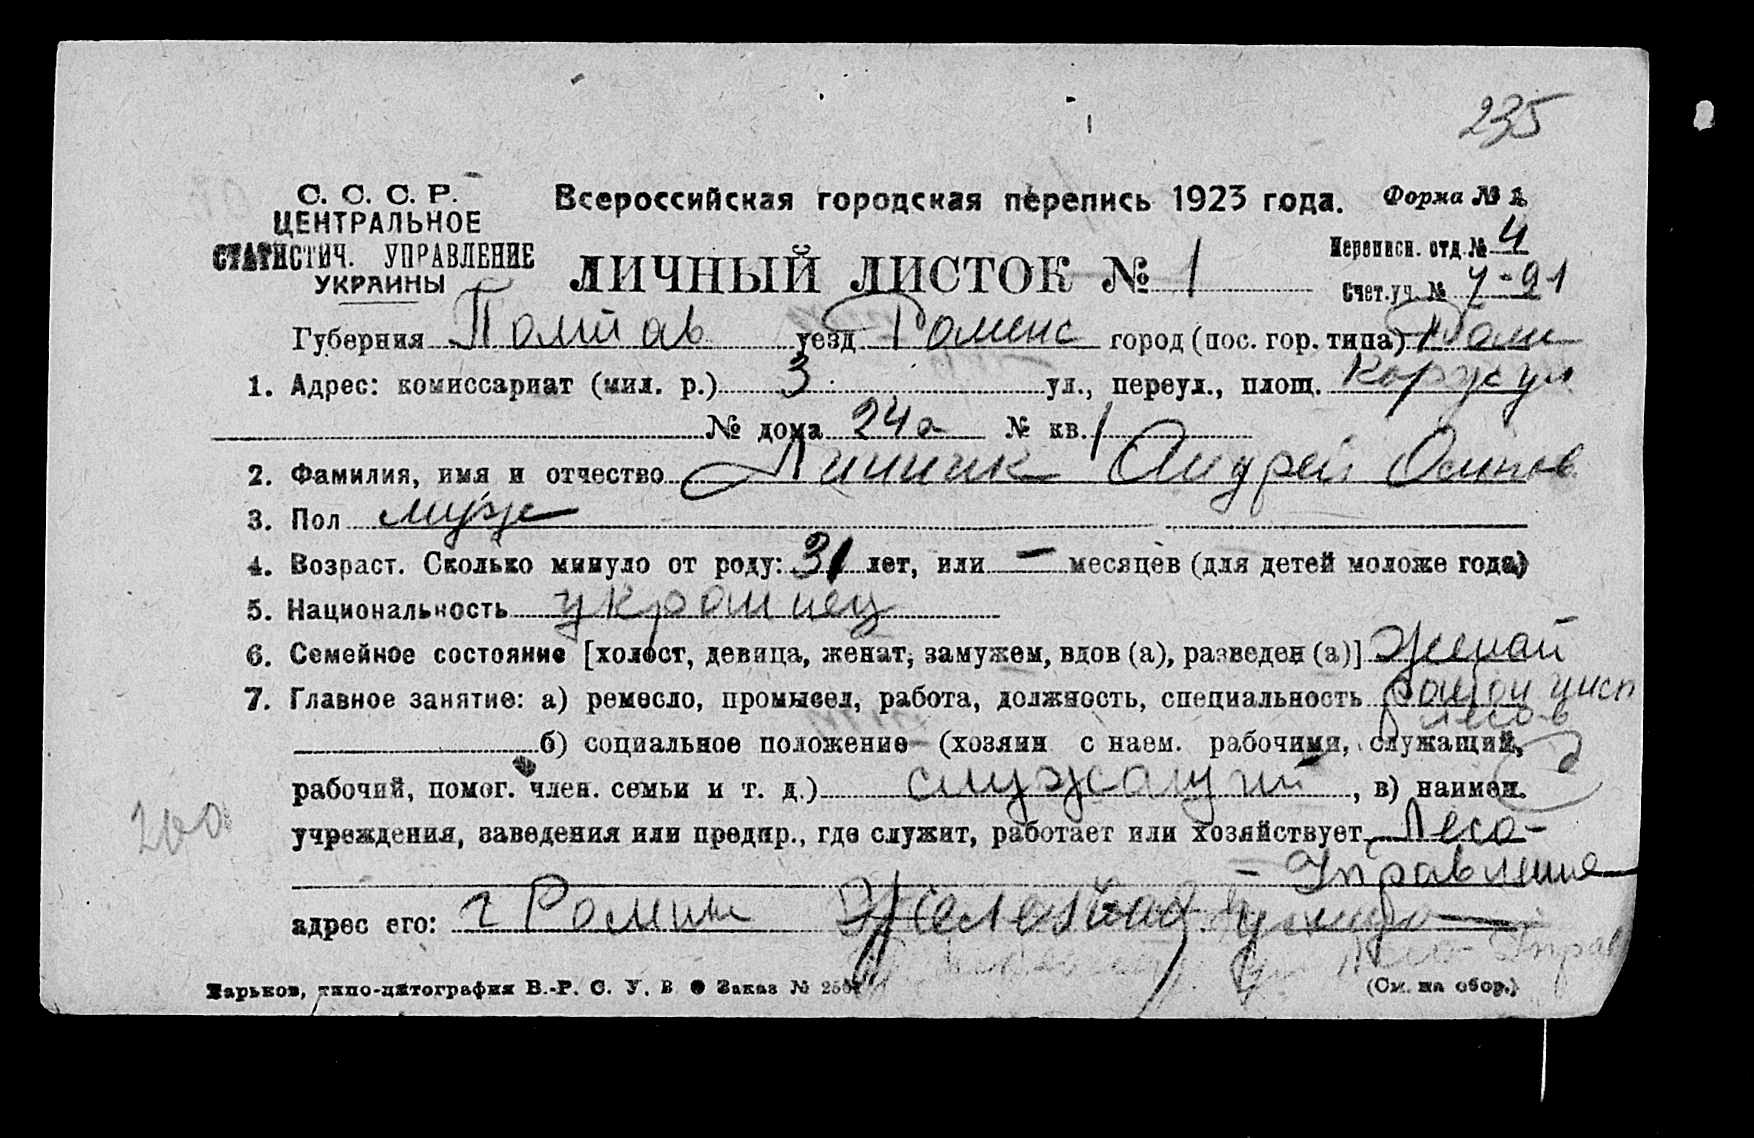 235
С. С. С. Р.
ЦЕНТРАЛЬНОЕ
СТАТИСТИЧ. УПРАВЛЕНИЕ
УКРАИНЫ
Всероссийская городская перепись 1923 года.
Форма № 1
ЛИЧНЫЙ ЛИСТОК № 1
Переписн. отд. № 4
Счет. уч. №
Губерния Полтав уезд Роменс город (пос. гор. типа) Ромн
1. Адрес: комиссариат (мил. р.) 3 ул., переул., площ.
№ дома 24а № кв. 1
2. Фамилия, имя и отчество Линник Андрей Осипов
3. Пол муж
4. Возраст. Сколько минуло от роду: 31 лет, или — месяцев (для детей моложе года)
5. Национальность украинец
6. Семейное состояние [холост, девица, женат, замужем, вдов (а), разведен (а)] Женат
7. Главное занятие: а) ремесло, промысел, работа, должность, специальность
лесов
б) социальное положение (хозяин с наем. рабочими, служащий,
рабочий, помог. член. семьи и т. д.) служащий, в) наимен.
200
учреждения, заведения или предпр., где служит, работает или хозяйствует Лесо-
Управление
адрес его: г Ромны
Лесо-Управ
Харьков, типо-литография В.-Р. С. У. В Заказ №
(См. на обор.)